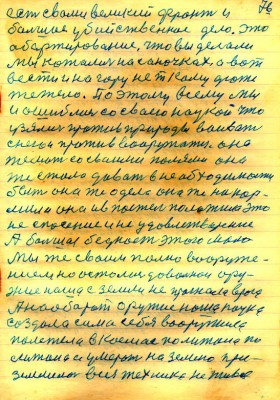 76
есть свали великий фронт и
большие убийственное дело. Это
абаргирование, что вы делали
мы катались на саночках, а вот
везти и на гору нет Кому дюже
тяжело. Поэтому всему мы
и ошиблись со своею наукой что
узялись против природы воевать
снега против вооружать. она
тоже со своими полями она
же стала давать в необходимости
быть она же одела она же накор-
мила она и в постель положила Это
не спасение и не удовлетворение
А большая бедность этого мало
Мы же своим полно вооруже-
нием не остались довольной ору-
жие наша с земли не прогнала врага
А наоборот оружие наша наука
создала сама себя вооружила
полетела в Космос полетала по
летала и умерла на землю при-
землилась вся техника не живое